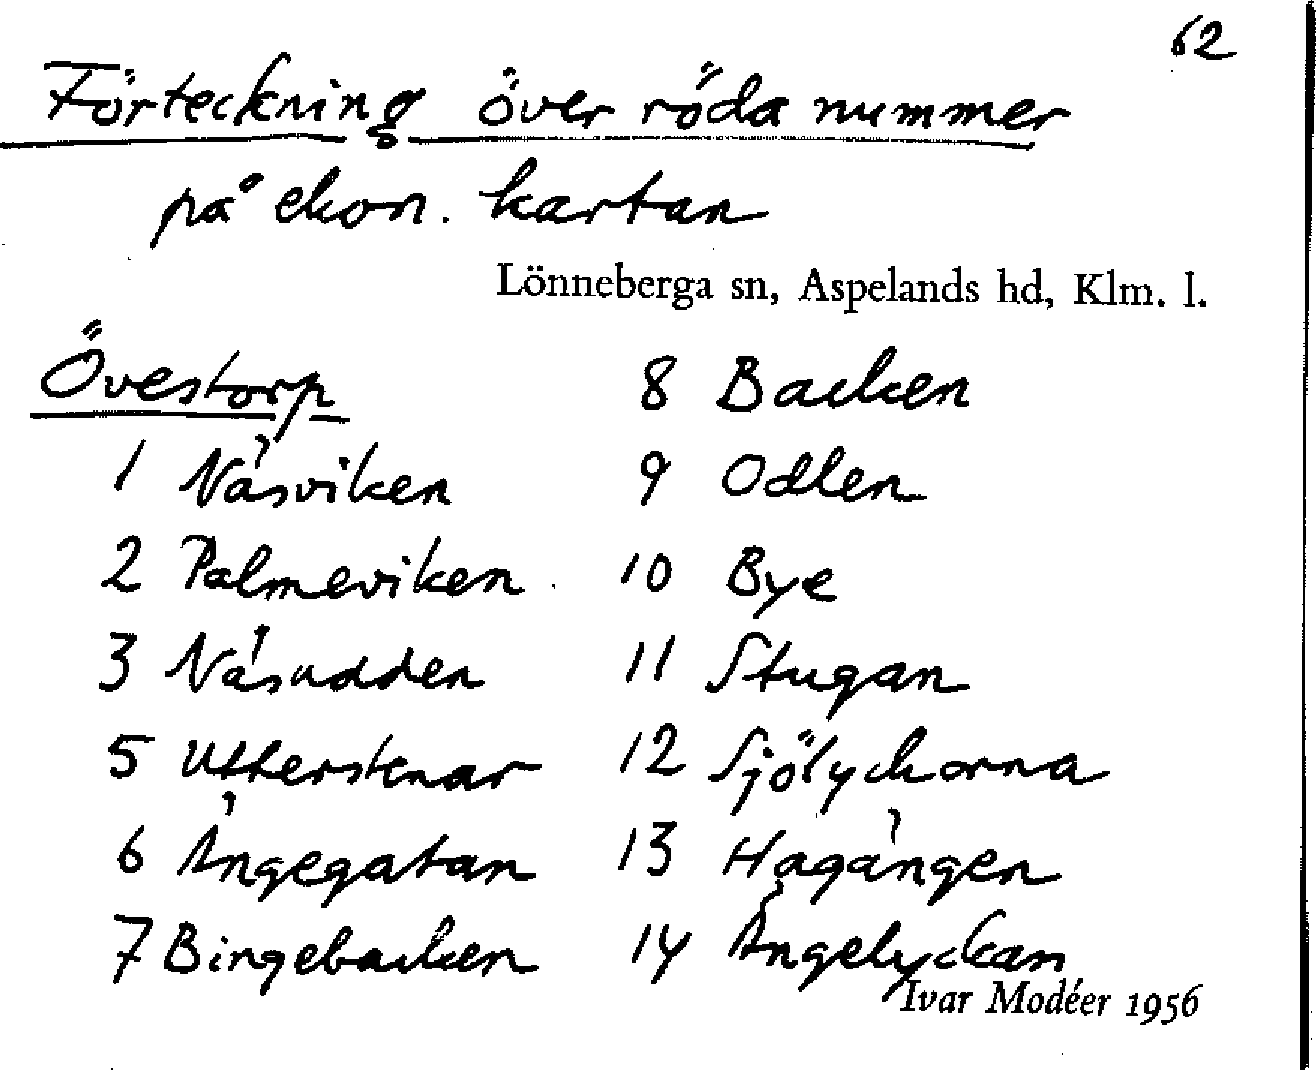 62
Förteckning över röda nummer
på ekon. kartan
Lönneberga sn, Aspelands hd, Klm. l.
Övestorp
1 Näsviken
2 Palmeviken
3 Näsudden
5 Utterstenar
6 Ängegatan
7 Bingebacken
8 Backen
9 Odlen
10 Bye
11 Stugan
12 Sjölyckorna
13 Hagängen
14 Ängelyckan
Ivar Modéer 1956